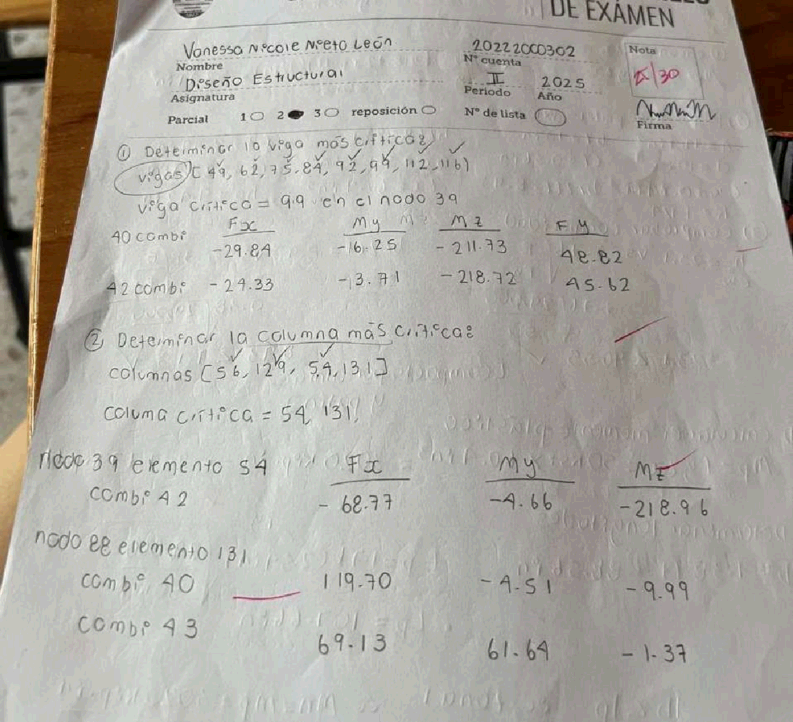 DE EXÁMEN
Vanessa Nicole Nieto León 20222000302
Nombre N° cuenta Nota
Diseño Estructural II 2025 /30
Asignatura Periodo Año
Parcial 1 2 3 reposición N° de lista Firma
① Determinar la viga más crítica:
vigas [49, 62, 75, 84, 92, 99, 112, 116)
viga crítica = 99 en el nodo 39
Fx My Mz Fy
40 combi -29.84 -16.25 -211.73 48.82
42 combi -24.33 -13.71 -218.72 45.62
② Determinar la columna más crítica:
columnas [56, 129, 54, 131]
columa crítica = 54, 131
nodo 39 elemento 54 Fx My Mz
combi 42 -68.77 -4.66 -218.96
nodo 88 elemento 131
combi 40 119.70 -4.51 -9.99
combi 43 69.13 61.64 -1.37